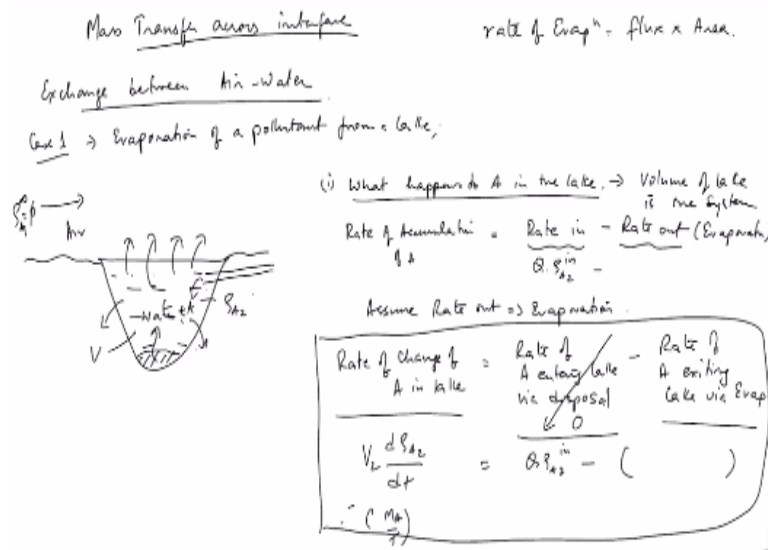 Mass Transfer across interface
rate of Evapⁿ = flux x Area.
Exchange between Air-Water
Case 1 → Evaporation of a pollutant from a lake,
Air
Water + A
ρA2
V
(i) What happens to A in the lake. → Volume of lake
is the system
Rate of Accumulation of A = Rate in - Rate out (Evaporatn
Q.ρA2^in -
Assume Rate out => Evaporation.
Rate of Change of A in lake = Rate of A entering lake via disposal - Rate of A exiting lake via Evap
0
V₂ dρA2/dt = Q.ρA2^in - ( )
(MA/T)